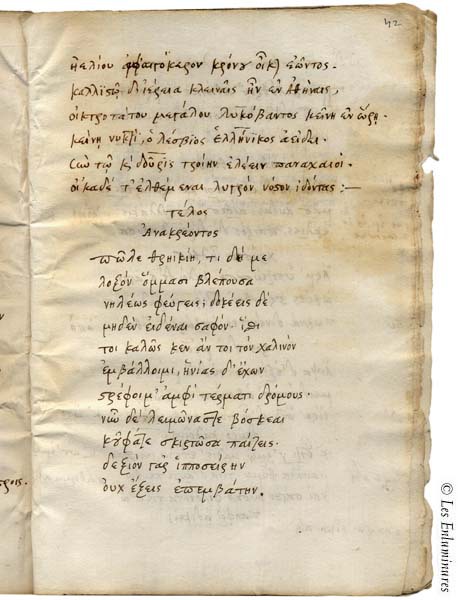 42
ἠελίου κρόνου ἐῶντος.
καλλιστὼ δ' ἱέρεια κλειναῖς ἦν ἐν Ἀθήναις,
οἰκτροτάτου μεγάλου λυκόβαντος κείνη ἐν ὥρῃ.
κείνη νυκτὶ, ὁ λέσβιος ἑλλήνικος ἀείδει.
σὺν τῶ κὶ δοῦρις τροίην ἑλέειν παναχαιοί.
οἴκαδέ τ' ἐλθέμεναι λυγρὸν νόστον ἰδόντας :—
τέλος
Ἀνακρέοντος
πῶλε θρηικίη, τι δή με
λοξὸν ὄμμασι βλέπουσα
νηλέως φεύγεις; δοκέεις δέ
μηδὲν εἰδέναι σοφόν. ἴσθι
τοι καλῶς κεν ἄν τοι τὸν χαλινὸν
ἐμβάλλοιμι, ἡνίας δ' ἔχων
στρέφοιμ' ἀμφὶ τέρματι δρόμους.
νῦν δὲ λειμῶνας τε βόσκεαι
κοῦφα τε σκιρτῶσα παίζεις.
δεξιὸν γὰρ ἱπποσείρην
οὐχ ἕξεις ἐπεμβάτην.
ροις.
© Les Enluminures